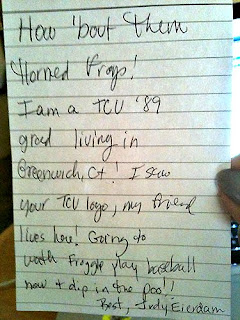 How 'bout them
Horned Frogs!
I am a TCU '89
grad living in
Greenwich, Ct! I saw
your TCU logo, my friend
lives here! Going to
watch Froggie play baseball
now & dip in the pool!
Best, Judy Eierdam